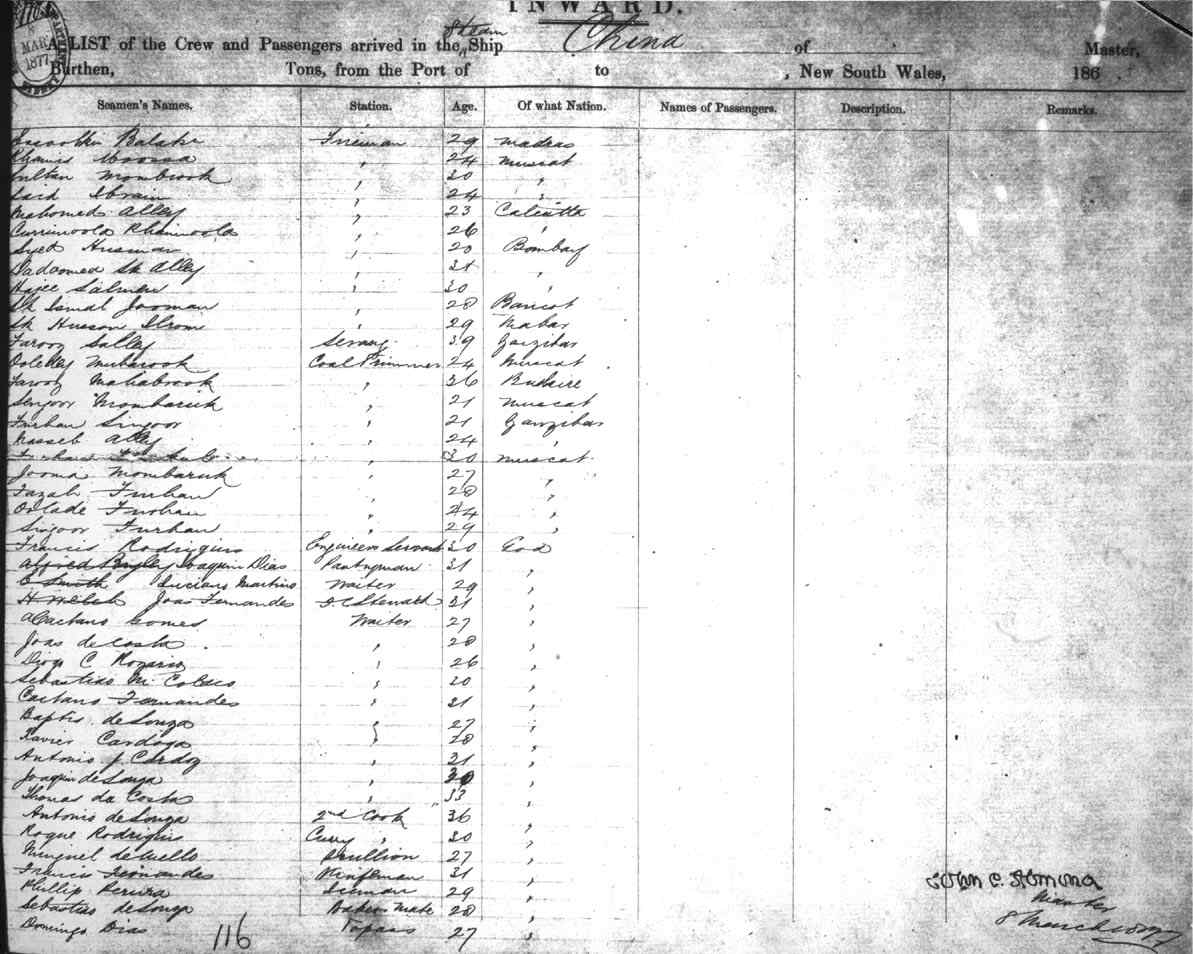 INWARD.
A LIST of the Crew and Passengers arrived in the Steam Ship China of Master,
Burthen, Tons, from the Port of to , New South Wales, 186
MAR
1877
Seamen's Names. Station. Age. Of what Nation. Names of Passengers. Description. Remarks.
Balake Fireman 29 Madras
Moosa " 24 Muscat
Sultan Mombrook " 30 "
Said Ibraim " 24 "
Mahomed Alley " 23 Calcutta
Currimoola Khamoola " 26 "
Syed Husman " 20 Bombay
Dadoomea Sk Alley " 31 "
Hajee Salmen " 30 "
Sk Ismal Jooman " 28 Bancot
Sk Huson " 29
Farooz Salley Serang 39 Zanzibar
Mubarook Coal Trimmer 24 Muscat
Farooz Mahabrook " 36
Sengoor Mombaruk " 21 Muscat
Furhan Singoor " 21 Zanzibar
Nasseb Alley " 24 "
" 30 Muscat
Jooma Mombaruk " 27 "
Fazah Furhan " 28 "
Furhan " 24 "
Singoor Furhan " 29 "
Francis Rodrigues Engineers Servant 30 Goa
Alfred Bayley Joaquin Dias Pantryman 31 "
C Smith Luciano Martins Waiter 29 "
H Welch Joao Fernandes 2.C Steward 31 "
Caetano Gomes Waiter 27 "
Joas de Costa " 28 "
Diogo C Rozario " 26 "
Sebastias M Colaco " 20 "
Caetano Fernandes " 21 "
Baptis de Souza " 27 "
Xavier Cardoza " 28 "
Antonio J Cardoz " 21 "
Joaquin de Souza " 30 "
Thomas da Costa " 33 "
Antonio de Souza 2nd Cook 36 "
Roque Rodriguis Curry " 30 "
Minguel de Mello Scullion 27 "
Francis Fernandes Knifeman 31 "
Phillip Pereira 29 "
Sebastias de Souza Bakers Mate 28 "
Domingo Dias Topass 27 "
116
John C.
Master
8 March 1877